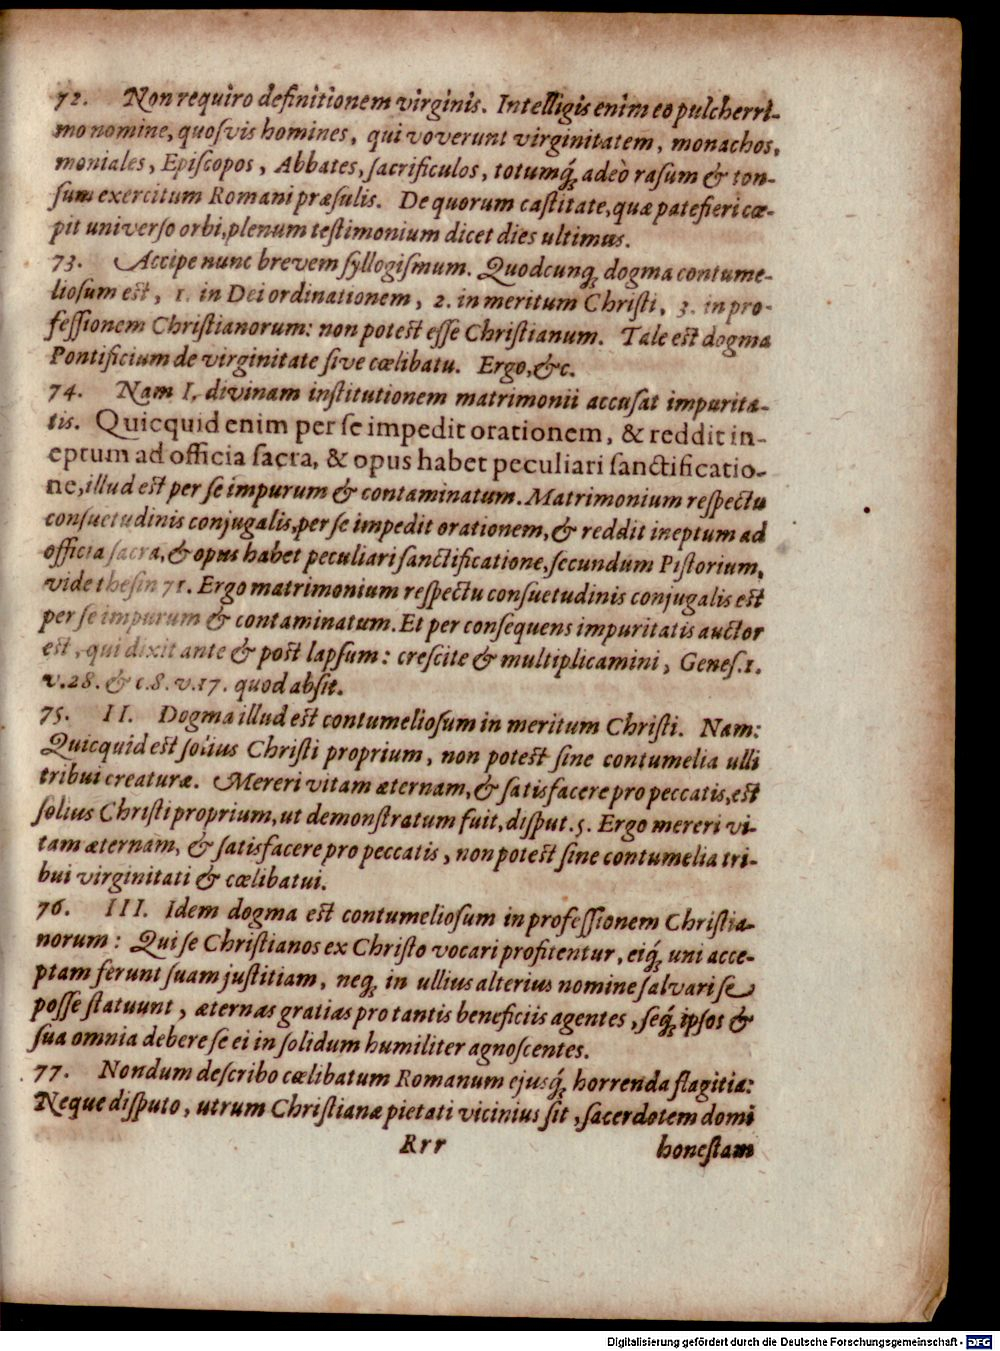 72. Non requiro definitionem virginis. Intelligis enim eo pulcherri-
mo nomine, quosvis homines, qui voverunt virginitatem, monachos,
moniales, Episcopos, Abbates, sacrificulos, totumq́; adeò rasum & ton-
sum exercitum Romani præsulis. De quorum castitate, quæ patefieri cœ-
pit universo orbi, plenum testimonium dicet dies ultimus.
73. Accipe nunc brevem syllogismum. Quodcunq; dogma contume-
liosum est, 1. in Dei ordinationem, 2. in meritum Christi, 3. in pro-
fessionem Christianorum: non potest esse Christianum. Tale est dogma
Pontificium de virginitate sive cœlibatu. Ergo, &c.
74. Nam I. divinam institutionem matrimonii accusat impurita-
tis. Quicquid enim per se impedit orationem, & reddit in-
eptum ad officia sacra, & opus habet peculiari sanctificatio-
ne, illud est per se impurum & contaminatum. Matrimonium respectu
consuetudinis conjugalis, per se impedit orationem, & reddit ineptum ad
officia sacra, & opus habet peculiari sanctificatione, secundum Pistorium,
vide thesin 71. Ergo matrimonium respectu consuetudinis conjugalis est
per se impurum & contaminatum. Et per consequens impuritatis auctor
est, qui dixit ante & post lapsum: crescite & multiplicamini, Genes. 1.
v. 28. & c. 8. v. 17. quod absit.
75. II. Dogma illud est contumeliosum in meritum Christi. Nam:
Quicquid est solius Christi proprium, non potest sine contumelia ulli
tribui creaturæ. Mereri vitam æternam, & satisfacere pro peccatis, est
solius Christi proprium, ut demonstratum fuit, disput. 5. Ergo mereri vi-
tam æternam, & satisfacere pro peccatis, non potest sine contumelia tri-
bui virginitati & cœlibatui.
76. III. Idem dogma est contumeliosum in professionem Christia-
norum: Qui se Christianos ex Christo vocari profitentur, eiq́; uni acce-
ptam ferunt suam justitiam, neq; in ullius alterius nomine salvari se
posse statuunt, æternas gratias pro tantis beneficiis agentes, seq́; ipsos &
sua omnia debere se ei in solidum humiliter agnoscentes.
77. Nondum describo cœlibatum Romanum ejusq́; horrenda flagitia:
Neque disputo, utrum Christianæ pietati vicinius sit, sacerdotem domi
Rrr honestam
Digitalisierung gefördert durch die Deutsche Forschungsgemeinschaft - DFG